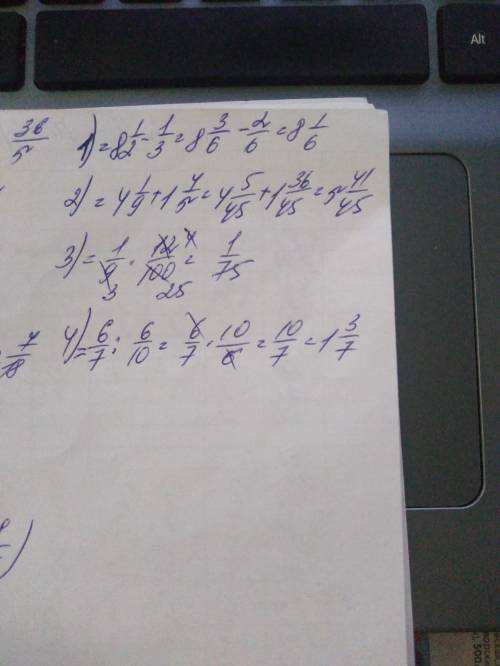 Alt
36/5
1) = 8 1/2 - 1/3 = 8 3/6 - 2/6 = 8 1/6
2) = 4 1/9 + 1 4/5 = 4 5/45 + 1 36/45 = 5 41/45
3) = 1/9 · 12/100 = 1/75
4
3 25
7/18
4) = 6/7 : 6/10 = 6/7 · 10/6 = 10/7 = 1 3/7